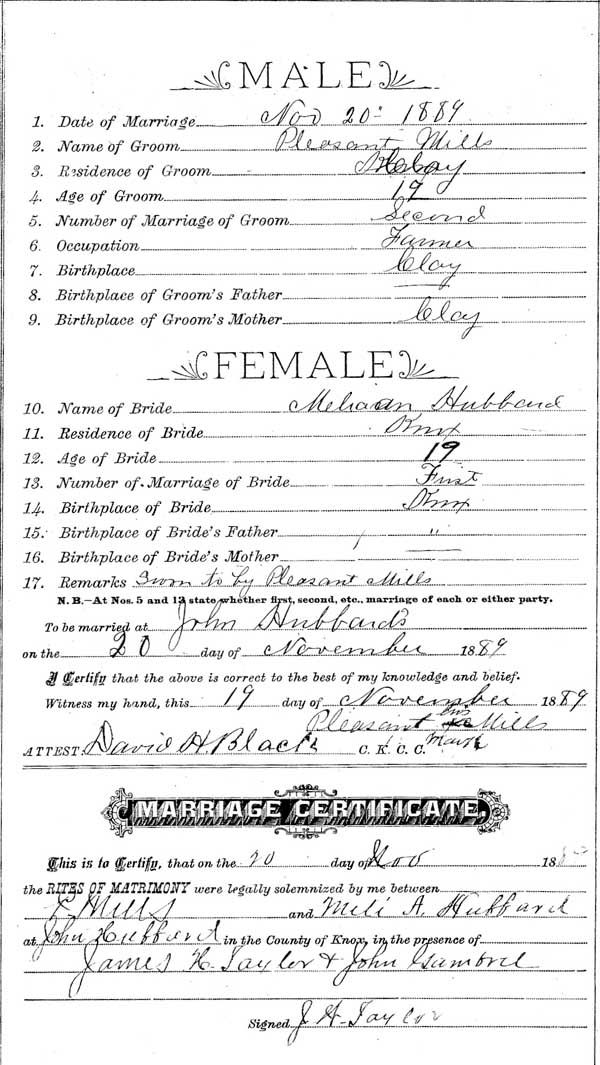 MALE
1. Date of Marriage Nov 20 1889
2. Name of Groom Pleasant Mills
3. Residence of Groom Clay
4. Age of Groom 19
5. Number of Marriage of Groom Second
6. Occupation Farmer
7. Birthplace Clay
8. Birthplace of Groom's Father
9. Birthplace of Groom's Mother Clay
FEMALE
10. Name of Bride Hubbard
11. Residence of Bride Knox
12. Age of Bride 19
13. Number of Marriage of Bride First
14. Birthplace of Bride Knox
15. Birthplace of Bride's Father "
16. Birthplace of Bride's Mother
17. Remarks Sworn to by Pleasant Mills
N. B.—At Nos. 5 and 13 state whether first, second, etc., marriage of each or either party.
To be married at John Hubbards
on the 20 day of November 1889
I Certify that the above is correct to the best of my knowledge and belief.
Witness my hand, this 19 day of November 1889
Pleasant his Mills
ATTEST: David H. Black C. K. C. C. mark
MARRIAGE CERTIFICATE.
This is to Certify, that on the 20 day of Nov 188
the RITES OF MATRIMONY were legally solemnized by me between
P Mills and Meli A. Hubbard
at John Hubbard in the County of Knox, in the presence of
James H. Taylor & John Gambrel
Signed J. H. Taylor